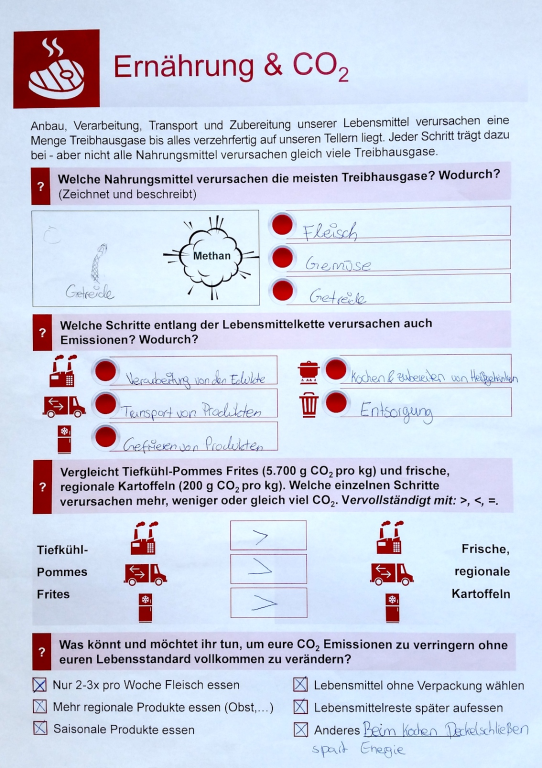 Ernährung & CO₂
Anbau, Verarbeitung, Transport und Zubereitung unserer Lebensmittel verursachen eine
Menge Treibhausgase bis alles verzehrfertig auf unseren Tellern liegt. Jeder Schritt trägt dazu
bei - aber nicht alle Nahrungsmittel verursachen gleich viele Treibhausgase.
? Welche Nahrungsmittel verursachen die meisten Treibhausgase? Wodurch?
(Zeichnet und beschreibt)
Getreide
Methan
Fleisch
Gemüse
Getreide
? Welche Schritte entlang der Lebensmittelkette verursachen auch
Emissionen? Wodurch?
Verarbeitung von den Edukte
Transport von Produkten
Gefrieren von Produkten
Kochen & zubereiten von
Entsorgung
? Vergleicht Tiefkühl-Pommes Frites (5.700 g CO₂ pro kg) und frische,
regionale Kartoffeln (200 g CO₂ pro kg). Welche einzelnen Schritte
verursachen mehr, weniger oder gleich viel CO₂. Vervollständigt mit: >, <, =.
Tiefkühl-
Pommes
Frites
>
>
>
Frische,
regionale
Kartoffeln
? Was könnt und möchtet ihr tun, um eure CO₂ Emissionen zu verringern ohne
euren Lebensstandard vollkommen zu verändern?
Nur 2-3x pro Woche Fleisch essen
Mehr regionale Produkte essen (Obst,...)
Saisonale Produkte essen
Lebensmittel ohne Verpackung wählen
Lebensmittelreste später aufessen
Anderes Beim Kochen Deckelschließen
spart Energie